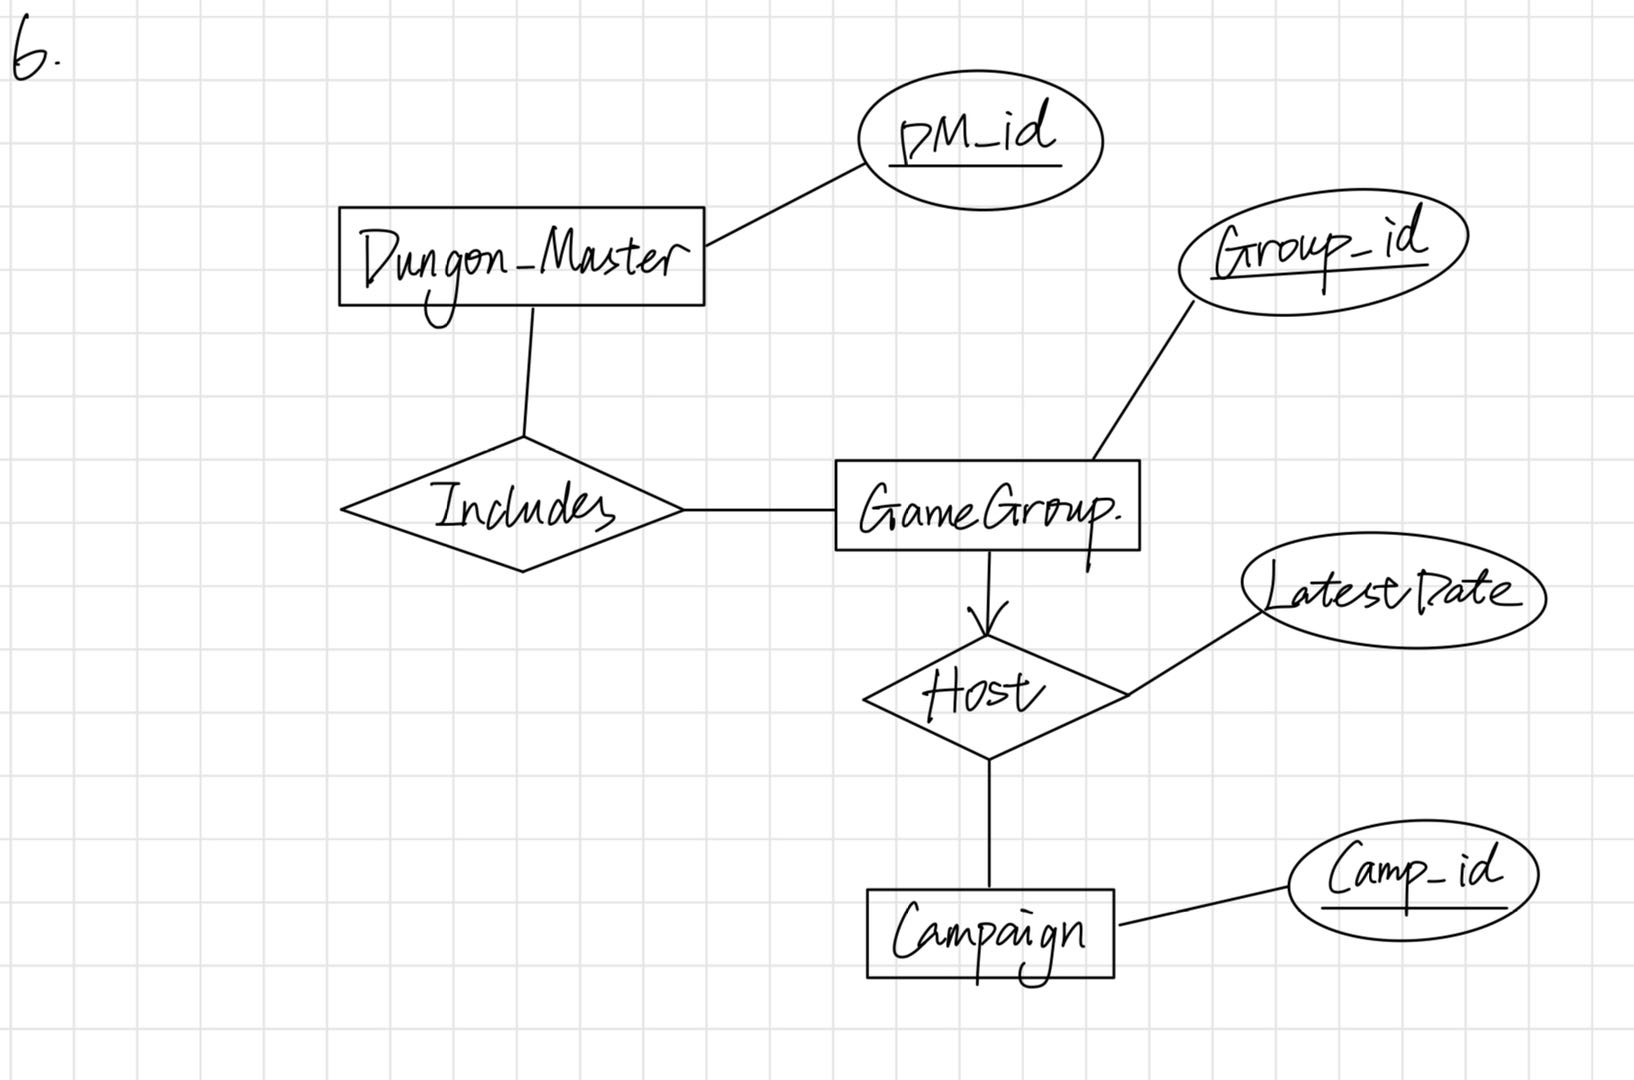 6.
DM_id
Dungon_Master
Group_id
Includes
GameGroup.
LatestDate
Host
Camp_id
Campaign